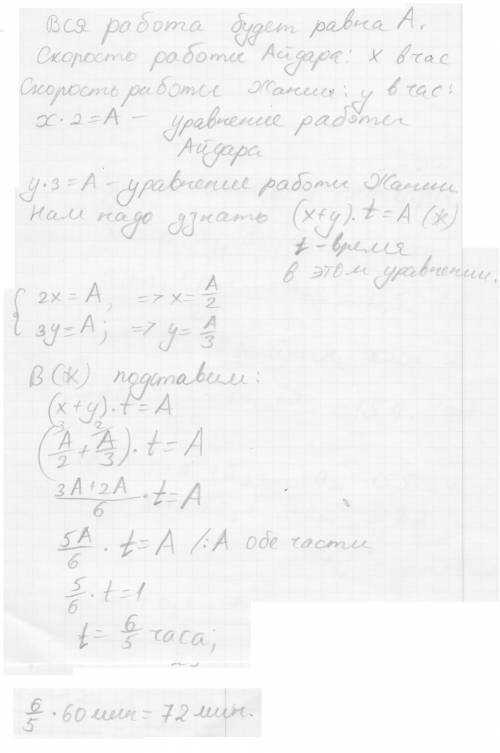 Вся работа будет равна А.
Скорость работы Айдара: х в час
Скорость работы Жании: у в час:
х·2=А – уравнение работы
Айдара
у·3=А – уравнение работы Жании
Нам надо узнать (х+у)·t=А (*)
t – время
в этом уравнении.
{ 2x=A, => x=A/2
3y=A; => y=A/3
В (*) подставим:
(x+y)·t=A
(A/2 + A/3)·t=A
3 2
(3A+2A)/6 ·t=A
5A/6 · t=A /:A обе части
5/6 · t=1
t= 6/5 часа;
6/5 · 60 мин = 72 мин.